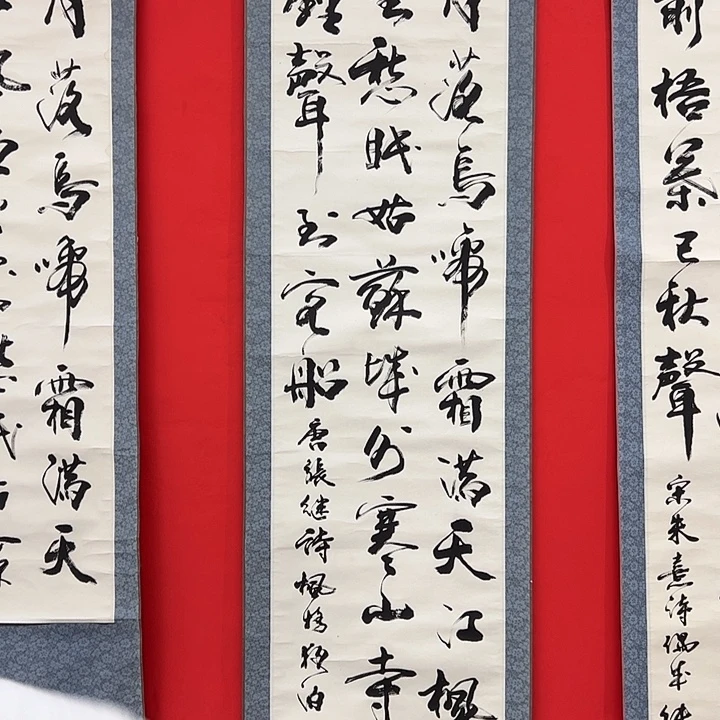 前梧葉已秋聲
宋朱熹詩偶成
月落烏啼霜滿天江楓
愁眠姑蘇城外寒山寺
鐘聲到客船
唐張继詩楓橋夜泊
月落烏啼霜滿天